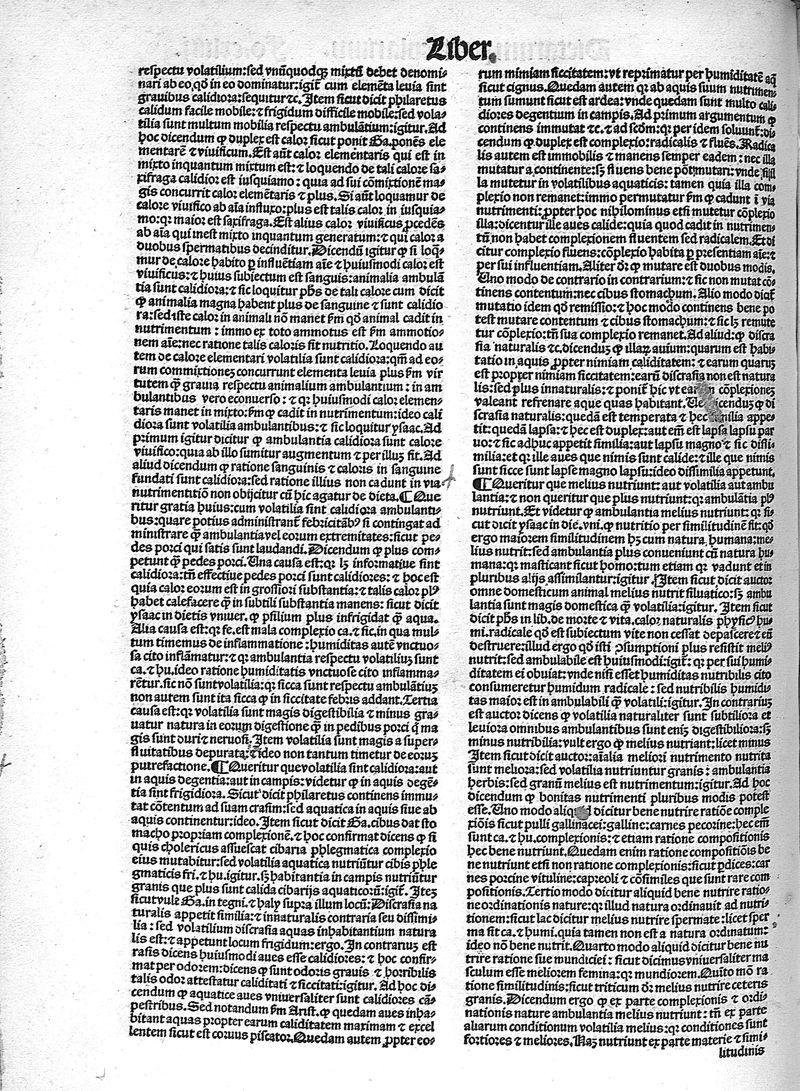 Liber.
respectu volatilium: sed vnũquodqꝫ mixtũ debet denomi-
nari ab eo, qđ in eo dominatur: igiť cum elemẽta leuia sint
grauibus calidiora: sequitur ⁊c. Item sicut dicit philaretus
calidum facile mobile: ⁊ frigidum difficile mobile: sed vola-
tilia sunt multum mobilia respectu ambulãtium: igitur. Ad
hoc dicendum ꝙ duplex est calor sicut ponit Ga. ponẽs ele
mentarẽ ⁊ viuificum. Est aũt calor elementaris qui est in
mixto inquantum mixtum est: ⁊ loquendo de tali calore sa-
xifraga calidior est iusquiamo: quia ad sui cõmixtionẽ ma-
gis concurrit calor elemẽtaris ⁊ plus. Si aũt loquamur de
calore viuifico ab aĩa influxo: plus est talis calor in iusquia-
mo: qr maior est saxifraga. Est alius calor viuificus ꝓcedẽs
ab aĩa qui inest mixto inquantum generatum: ⁊ qui calor a
duobus spermatibus decinditur. Dicendũ igitur ꝙ si loq̃-
mur de calore habito ꝑ influẽtiam aĩe ⁊ huiusmodi calor est
viuificus: ⁊ huius subiectum est sanguis: animalia ambulã
tia sunt calidiora: ⁊ sic loquitur ph̃s de tali calore cum dicit
ꝙ animalia magna habent plus de sanguine ⁊ sunt calidio
ra: sed iste calor in animali nõ manet ꝑm qđ animal cadit in
nutrimentum: immo ex toto ammotus est ꝑm ammotio-
nem aĩe: nec ratione talis caloris fit nutritio. Loquendo au
tem de calore elementari volatilia sunt calidiora: qm̃ ad eo-
rum commixtionẽ concurrunt elementa leuia plus ꝑm vir
tutem ꝙ̃ grauia respectu animalium ambulantium: in am
bulantibus vero econuerso: ⁊ qr huiusmodi calor elemen-
taris manet in mixto: ꝑm ꝙ cadit in nutrimentum: ideo cali
diora sunt volatilia ambulantibus: ⁊ sic loquitur ysaac. Ad
pꝛimum igitur dicitur ꝙ ambulantia calidiora sunt calore
viuifico: quia ab illo sumitur augmentum ⁊ per illuꝫ fit. Ad
aliud dicendum ꝙ ratione sanguinis ⁊ caloris in sanguine
fundati sunt calidiora: sed ratione illius non cadunt in via
nutrimenti: tiõ non obijcitur cũ hic agatur de dieta. ¶ Que
ritur gratia huius: cum volatilia sint calidiora ambulanti-
bus: quare potius administranť febricitãtibꝰ si contingat ad
ministrare ꝙ̃ ambulantia vel eorum extremitates: sicut pe-
des porci qui satis sunt laudandi. Dicendum ꝙ plus com-
petunt ꝙ̃ pedes porci. Una causa est: qr lꝫ informatiue sint
calidiora: tñ effectiue pedes porci sunt calidiores: ⁊ hoc est
quia calor eorum est in grossiori substantia: ⁊ talis calor plꝰ
habet calefacere ꝙ̃ in subtili substantia manens: sicut dicit
ysaac in dietis vniuer. ꝙ psilium plus infrigidat ꝙ̃ aqua.
Alia causa est: qr fe. est mala complexio ca. ⁊ sic. in qua mul-
tum timemus de inflammatione: humiditas autẽ vnctuo-
sa cito inflãmatur: ⁊ qr ambulantia respectu volatiliuꝫ sunt
ca. ⁊ hu. ideo ratione humiditatis vnctuose cito inflamma-
rẽtur. sic nõ sunt volatilia: qr sicca sunt respectu ambulãtiuꝫ
non autem sunt ita sicca ꝙ in siccitate febris addant. Tertia
causa est: qr volatilia sunt magis digestibilia ⁊ minus gra-
uatur natura in eorum digestione ꝙ̃ in pedibus porci q̃ ma
gis sunt duri ⁊ neruosi. Item volatilia sunt magis a super-
fluitatibus depurata: ⁊ ideo non tantum timetur de eoruꝫ
putrefactione. ¶ Queritur que volatilia sint calidiora: aut
in aquis degentia: aut in campis: videtur ꝙ in aquis degẽ-
tia sint frigidiora. Sicut dicit philaretus continens immu-
tat cõtentum ad suam crasim: sed aquatica in aquis siue ab
aquis continentur: ideo. Item sicut dicit Ga. cibus dat sto
macho propꝛiam complexionẽ. ⁊ hoc confirmat dicens ꝙ si
quis cholericus assuescat cibaria phlegmatica complexio
eius mutabitur: sed volatilia aquatica nutriũtur cibis phle
gmaticis fri. ⁊ hu. igitur. sꝫ habitantia in campis nutriũtur
granis que plus sunt calida cibarijs aquaticorũ: igiť. Iteꝫ
sicut vult Ga. in tegni. ⁊ haly supra illum locũ: Discrasia na
turalis appetit similia: ⁊ innaturalis contraria seu dissimi-
lia: sed volatilium discrasia aquas inhabitantium natura
lis est: ⁊ appetunt locum frigidum: ergo. In contrariuꝫ est
rasis dicens huiusmodi aues esse calidiores: ⁊ hoc confir-
mat per odorem: dicens ꝙ sunt odoris grauis ⁊ horribilis
talis odor attestatur caliditati ⁊ siccitati: igitur. Ad hoc di-
cendum ꝙ aquatice aues vniuersaliter sunt calidiores cã-
pestribus. Sed notandum ꝑm Arist. ꝙ quedam aues inha-
bitant aquas propter earum caliditatem maximam ⁊ excel
lentem sicut est coruus piscator. Quedam autem ꝓpter eo-
rum nimiam siccitatem: vt reprimatur per humiditatẽ aq̃
sicut cignus. Quedam autem qr ab aquis suum nutrimen-
tum sumunt sicut est ardea: vnde quedam sunt multo cali
diores degentium in campis. Ad pꝛimum argumentum ꝙ
continens immutat ⁊c. ⁊ ad scđm: qr per idem soluunť: di-
cendum ꝙ duplex est complexio: radicalis ⁊ fluẽs. Radica
lis autem est immobilis ⁊ manens semper eadem: nec illa
mutatur a continente: sꝫ fluens bene põt mutari: vnde licꝫ il
la mutetur in volatilibus aquaticis: tamen quia illa com-
plexio non remanet: immo permutatur ꝑm ꝙ cadunt ĩ via
nutrimenti: ꝓpter hoc nihilominus etñ mutetur cõplexio
illa: dicentur ille aues calide: quia quod cadit in nutrimen-
tũ non habet complexionem fluentem sed radicalem. Et di
citur complexio fluens: cõplexio habita ꝑ presentiam aĩe: ⁊
per sui influentiam. Aliter dr̃ ꝙ mutare est duobus modis.
Uno modo de contrario in contrarium: ⁊ sic non mutat cõ-
tinens contentum: nec cibus stomachum. Alio modo diciť
mutatio idem qđ remissio: ⁊ hoc modo continens bene po
test mutare contentum ⁊ cibus stomachum: ⁊ sic lꝫ remute
tur cõplexio: tñ sua complexio remanet. Ad aliud: ꝙ discra
sia naturalis ⁊c. dicenduꝫ ꝙ illaꝝ auium: quarum est habi
tatio in aquis ꝓpter nimiam caliditatem: ⁊ earum quaruꝫ
est propter nimiam siccitatem: earũ discrasia non est natura
lis: sed plus innaturalis: ⁊ poniť hic vt earum cõplexiones
valeant refrenare aque quas habitant. Uel dicendus ꝙ di
scrasia naturalis: quedã est temperata ⁊ hec similia appe-
tit: quedã lapsa: ⁊ hec est duplex: aut em̃ est lapsa lapsu par
uo: ⁊ sic adhuc appetit similia: aut lapsu magno ⁊ sic dissi-
milia: et qr ille aues que nimis sunt calide: ⁊ ille que nimis
sunt sicce sunt lapse magno lapsu: ideo dissimilia appetunt.
¶ Queritur que melius nutriunt: aut volatilia aut ambu
lantia: ⁊ non queritur que plus nutriunt: qr ambulãtia plꝰ
nutriunt. Et videtur ꝙ ambulantia melius nutriunt: qr si-
cut dicit ysaac in die. vni. ꝙ nutritio per similitudinẽ fit: qđ
ergo maiorem similitudinem hꝫ cum natura humana: me-
lius nutrit: sed ambulantia plus conueniunt cũ natura hu-
mana: qr masticant sicut homo: tum etiam qr vadunt et in
pluribus alijs assimilantur: igitur. Item sicut dicit auctor
omne domesticum animal melius nutrit siluatico: sꝫ ambu
lantia sunt magis domestica ꝙ̃ volatilia: igitur. Item sicut
dicit ph̃s in lib. de morte ⁊ vita. calor naturalis physicꝰ hu-
mi. radicale qđ est subiectum vite non cessat depascere ⁊ eũ
destruere: illud ergo qđ isti ɔsumptioni plus resistit meliꝰ
nutrit: sed ambulabile est huiusmodi: igiť. qr per sui humi-
ditatem ei obuiat: vnde nisi esset humiditas nutribilis cito
consumeretur humidum radicale: sed nutribilis humidi-
tas maior est in ambulabili ꝙ̃ volatili: igitur. In contrariuꝫ
est auctor dicens ꝙ volatilia naturaliter sunt subtiliora et
leuiora omnibus ambulantibus sunt eniꝫ digestibiliora: sꝫ
minus nutribilia: vult ergo ꝙ melius nutriant: licet minus
Item sicut dicit auctor: aĩalia meliori nutrimento nutrita
sunt meliora: sed volatilia nutriuntur granis: ambulantia
herbis: sed granũ melius est nutrimentum: igitur. Ad hoc
dicendum ꝙ bonitas nutrimenti pluribus modis potest
esse. Uno modo aliquid dicitur bene nutrire ratiõe comple
xiõis sicut pulli gallinacei: galline: carnes pecorine: hec em̃
sunt ca. ⁊ hu. complexionis: ⁊ etiam ratione compositionis
hec bene nutriunt. Quedam enim ratione compositiõis be
ne nutriunt etñ non ratione complexionis: sicut ꝑdices: car
nes porcine vituline: capreoli ⁊ cõsimiles que sunt rare com
positionis. Tertio modo dicitur aliquid bene nutrire ratio-
ne ordinationis nature: qr illud natura ordinauit ad nutri-
tionem: sicut lac dicitur melius nutrire spermate: licet sper
ma sit ca. ⁊ humi. quia tamen non est a natura ordinatum:
ideo nõ bene nutrit. Quarto modo aliquid dicitur bene nu
trire ratione sue mundiciei: sicut dicimus vniuersaliter ma
sculum esse meliorem femina: qr mundiorem. Quĩto mõ ra
tione similitudinis: sicut triticum dr̃ melius nutrire ceteris
granis. Dicendum ergo ꝙ ex parte complexionis ⁊ ordi-
nationis nature ambulantia melius nutriunt: tñ ex parte
aliarum conditionum volatilia melius: qr conditiones sunt
fortiores ⁊ meliores. Naꝫ nutriunt ex parte materie ⁊ simi-
litudinis